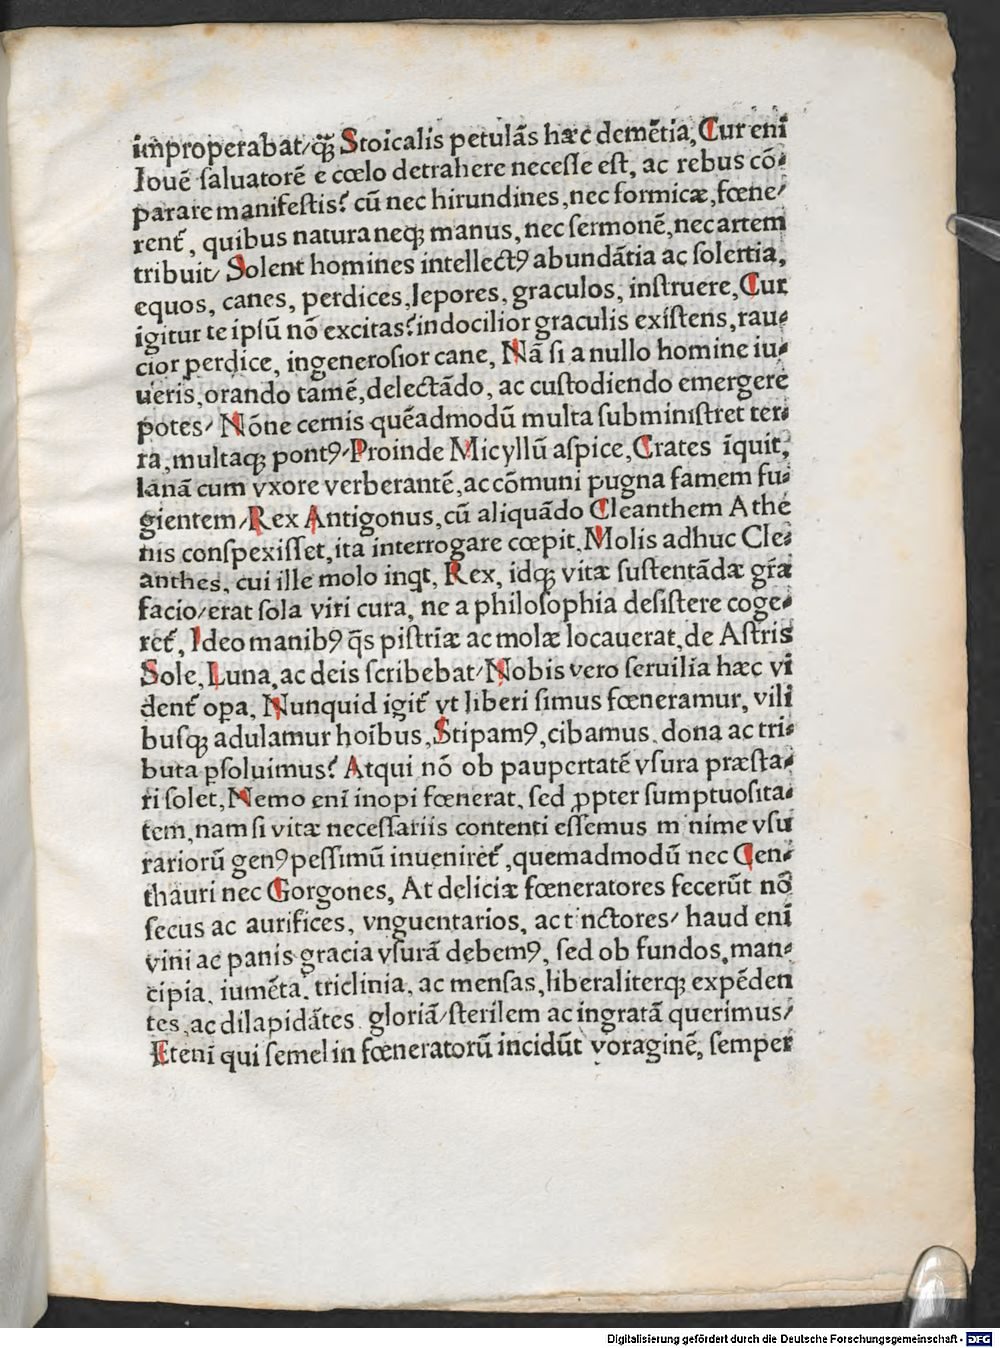 im̃properabat/qꝫ̃ Stoicalis petulãs hæc demẽtia, Cur enĩ
Iouẽ ſaluatorẽ e cœlo detrahere neceſſe eſt, ac rebus cõ⸗
parare manifeſtis? cũ nec hirundines, nec formicæ, fœne/
renť, quibus natura neqꝫ manus, nec ſermonẽ, nec artem
tribuit/ Solent homines intellectꝰ abundãtia ac ſolertia,
equos, canes, perdices, lepores, graculos, inſtruere, Cur
igitur te ipſũ nõ excitas? indocilior graculis exiſtens, rau⸗
cior perdice, ingeneroſior cane, Nã ſi a nullo homine iu⸗
ueris, orando tamẽ, delectãdo, ac cuſtodiendo emergere
potes/ Nõne cernis quẽadmodũ multa ſubminiſtret ter⸗
ra, multaqꝫ pontꝰ/Proinde Micyllũ aſpice, Crates ĩquit,
lanã cum vxore verberantẽ, ac cõmuni pugna famem fu⸗
gientem/Rex Antigonus, cũ aliquãdo Cleanthem Athe
nis conſpexiſſet, ita interrogare cœpit. Molis adhuc Cle⸗
anthes, cui ille molo inqt, Rex, idqꝫ vitæ ſuſtentãdæ grã
facio/erat ſola viri cura, ne a philoſophia deſiſtere coge⸗
reť, Ideo manibꝰ q̃s piſtriæ ac molæ locauerat, de Aſtris
Sole, Luna, ac deis ſcribebat/Nobis vero ſeruilia hæc vi
denť oꝑa, Nunquid igiť vt liberi ſimus fœneramur, vili
buſqꝫ adulamur hoĩbus, Stipamꝰ, cibamus. dona ac tri⸗
buta ꝑſoluimus? Atqui nõ ob paupertatẽ vſura præſta⸗
ri ſolet, Nemo enĩ inopi fœnerat, ſed ꝓpter ſumptuoſita⸗
tem, nam ſi vitæ neceſſariis contenti eſſemus m nime vſu
rariorũ genꝰ peſſimũ inuenireť, quemadmodũ nec Cen⸗
thauri nec Gorgones, At deliciæ fœneratores fecerũt nõ
ſecus ac aurifices, vnguentarios, ac t nctores/ haud enĩ
vini ac panis gracia vſurã debemꝰ, ſed ob fundos, man⸗
cipia, iumẽta, triclinia, ac menſas, liberaliterqꝫ expẽden
tes, ac dilapidãtes gloriã/ſterilem ac ingratã querimus/
Etenĩ qui ſemel in fœneratorũ incidũt voraginẽ, ſemper
Digitalisierung gefördert durch die Deutsche Forschungsgemeinschaft - DFG